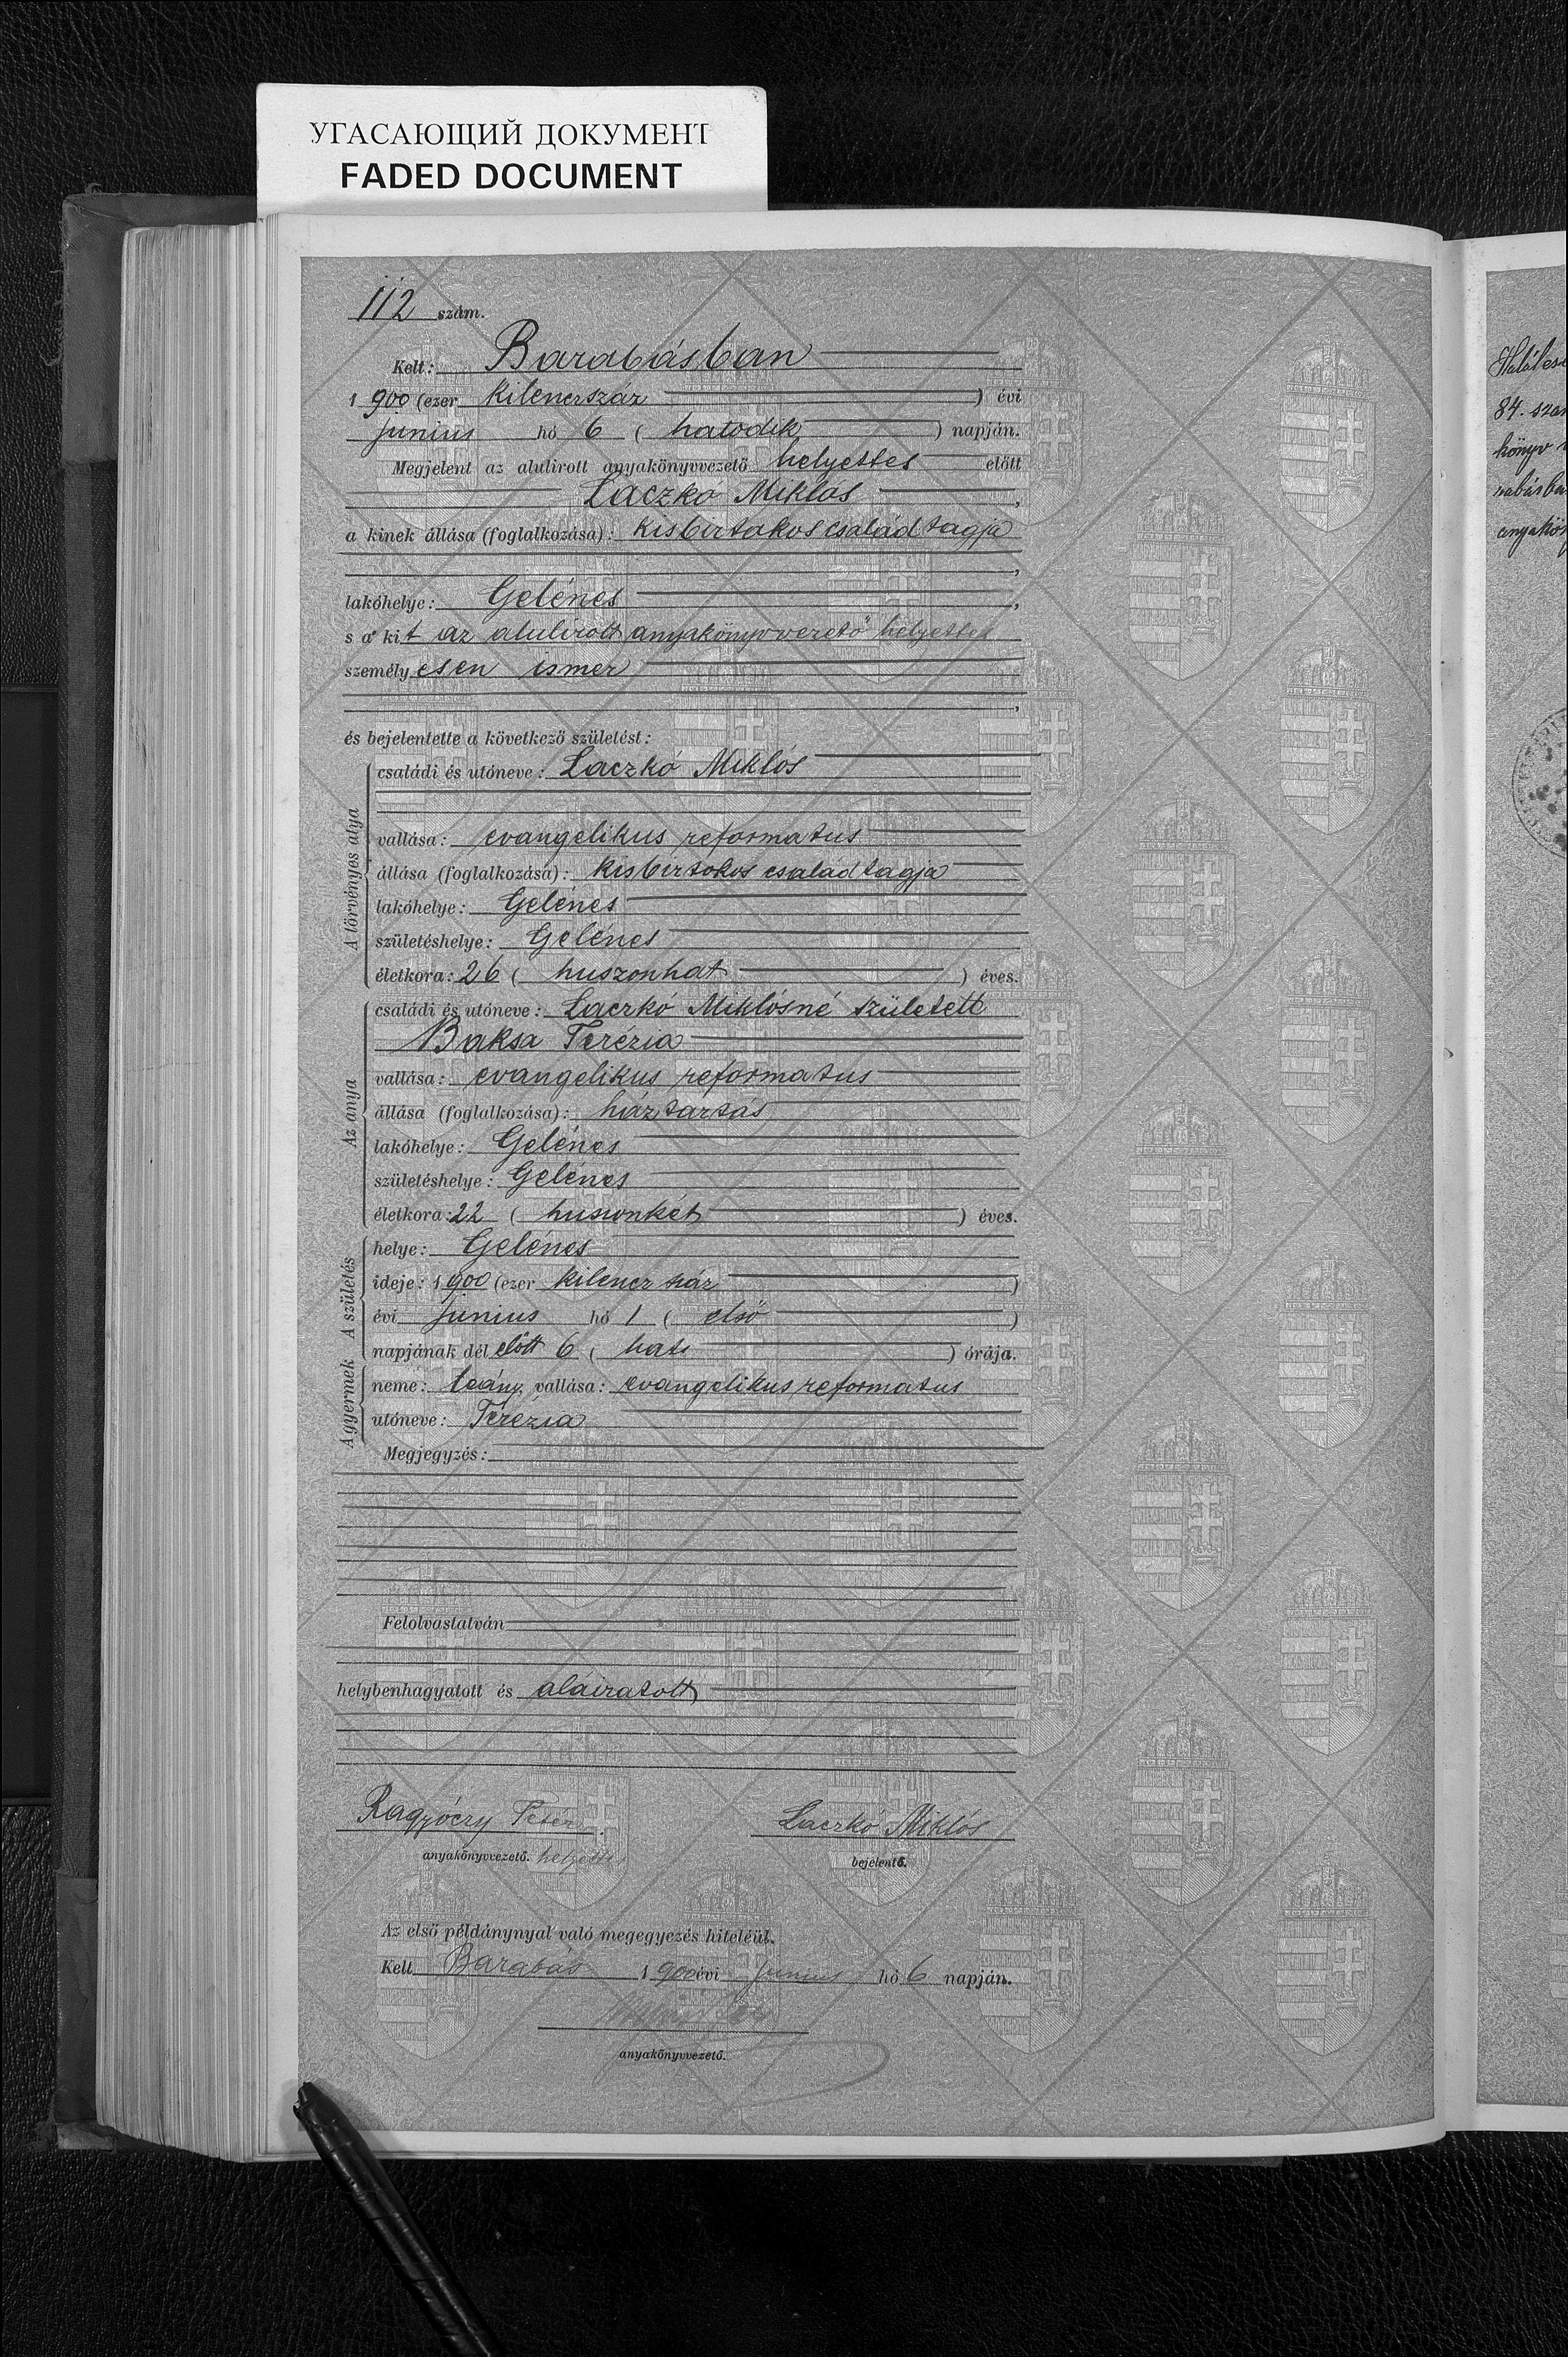 УГАСАЮЩИЙ ДОКУМЕНТ
FADED DOCUMENT
112 szám.
Kelt: Barabásban
1900 (ezer kilenczszáz) évi
junius hó 6 (hatodik) napján.
Megjelent az alulirott anyakönyvvezető helyettes előtt
Laczkó Miklós,
a kinek állása (foglalkozása): kisbirtokos család tagja
,
lakóhelye: Gelénes,
s a kit az alulirott anyakönyvvezető helyettes
személyesen ismer
,
és bejelentette a következő születést:
A törvényes atya
családi és utóneve: Laczkó Miklós
vallása: evangelikus reformatus
állása (foglalkozása): kisbirtokos család tagja
lakóhelye: Gelénes
születéshelye: Gelénes
életkora: 26 (huszonhat) éves.
Az anya
családi és utóneve: Laczkó Miklósné született
Baksa Terézia
vallása: evangelikus reformatus
állása (foglalkozása): háztartás
lakóhelye: Gelénes
születéshelye: Gelénes
életkora: 22 (huszonkét) éves.
A születés
helye: Gelénes
ideje: 1900 (ezer kilencz száz)
évi junius hó 1 (első)
napjának dél előtt 6 (hat) órája.
A gyermek
neme: leány, vallása: evangelikus reformatus
utóneve: Terézia
Megjegyzés:
Felolvastatván
helybenhagyatott és aláiratott
Ragyóczy Péter Laczkó Miklós
anyakönyvvezető. helyettes bejelentő.
Az első példánynyal való megegyezés hiteléül.
Kelt Barabás 1900 évi junius hó 6 napján.
anyakönyvvezető.
84. szá
könyv